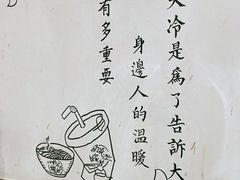 天冷是為了告訴大
身邊人的溫暖
有多重要